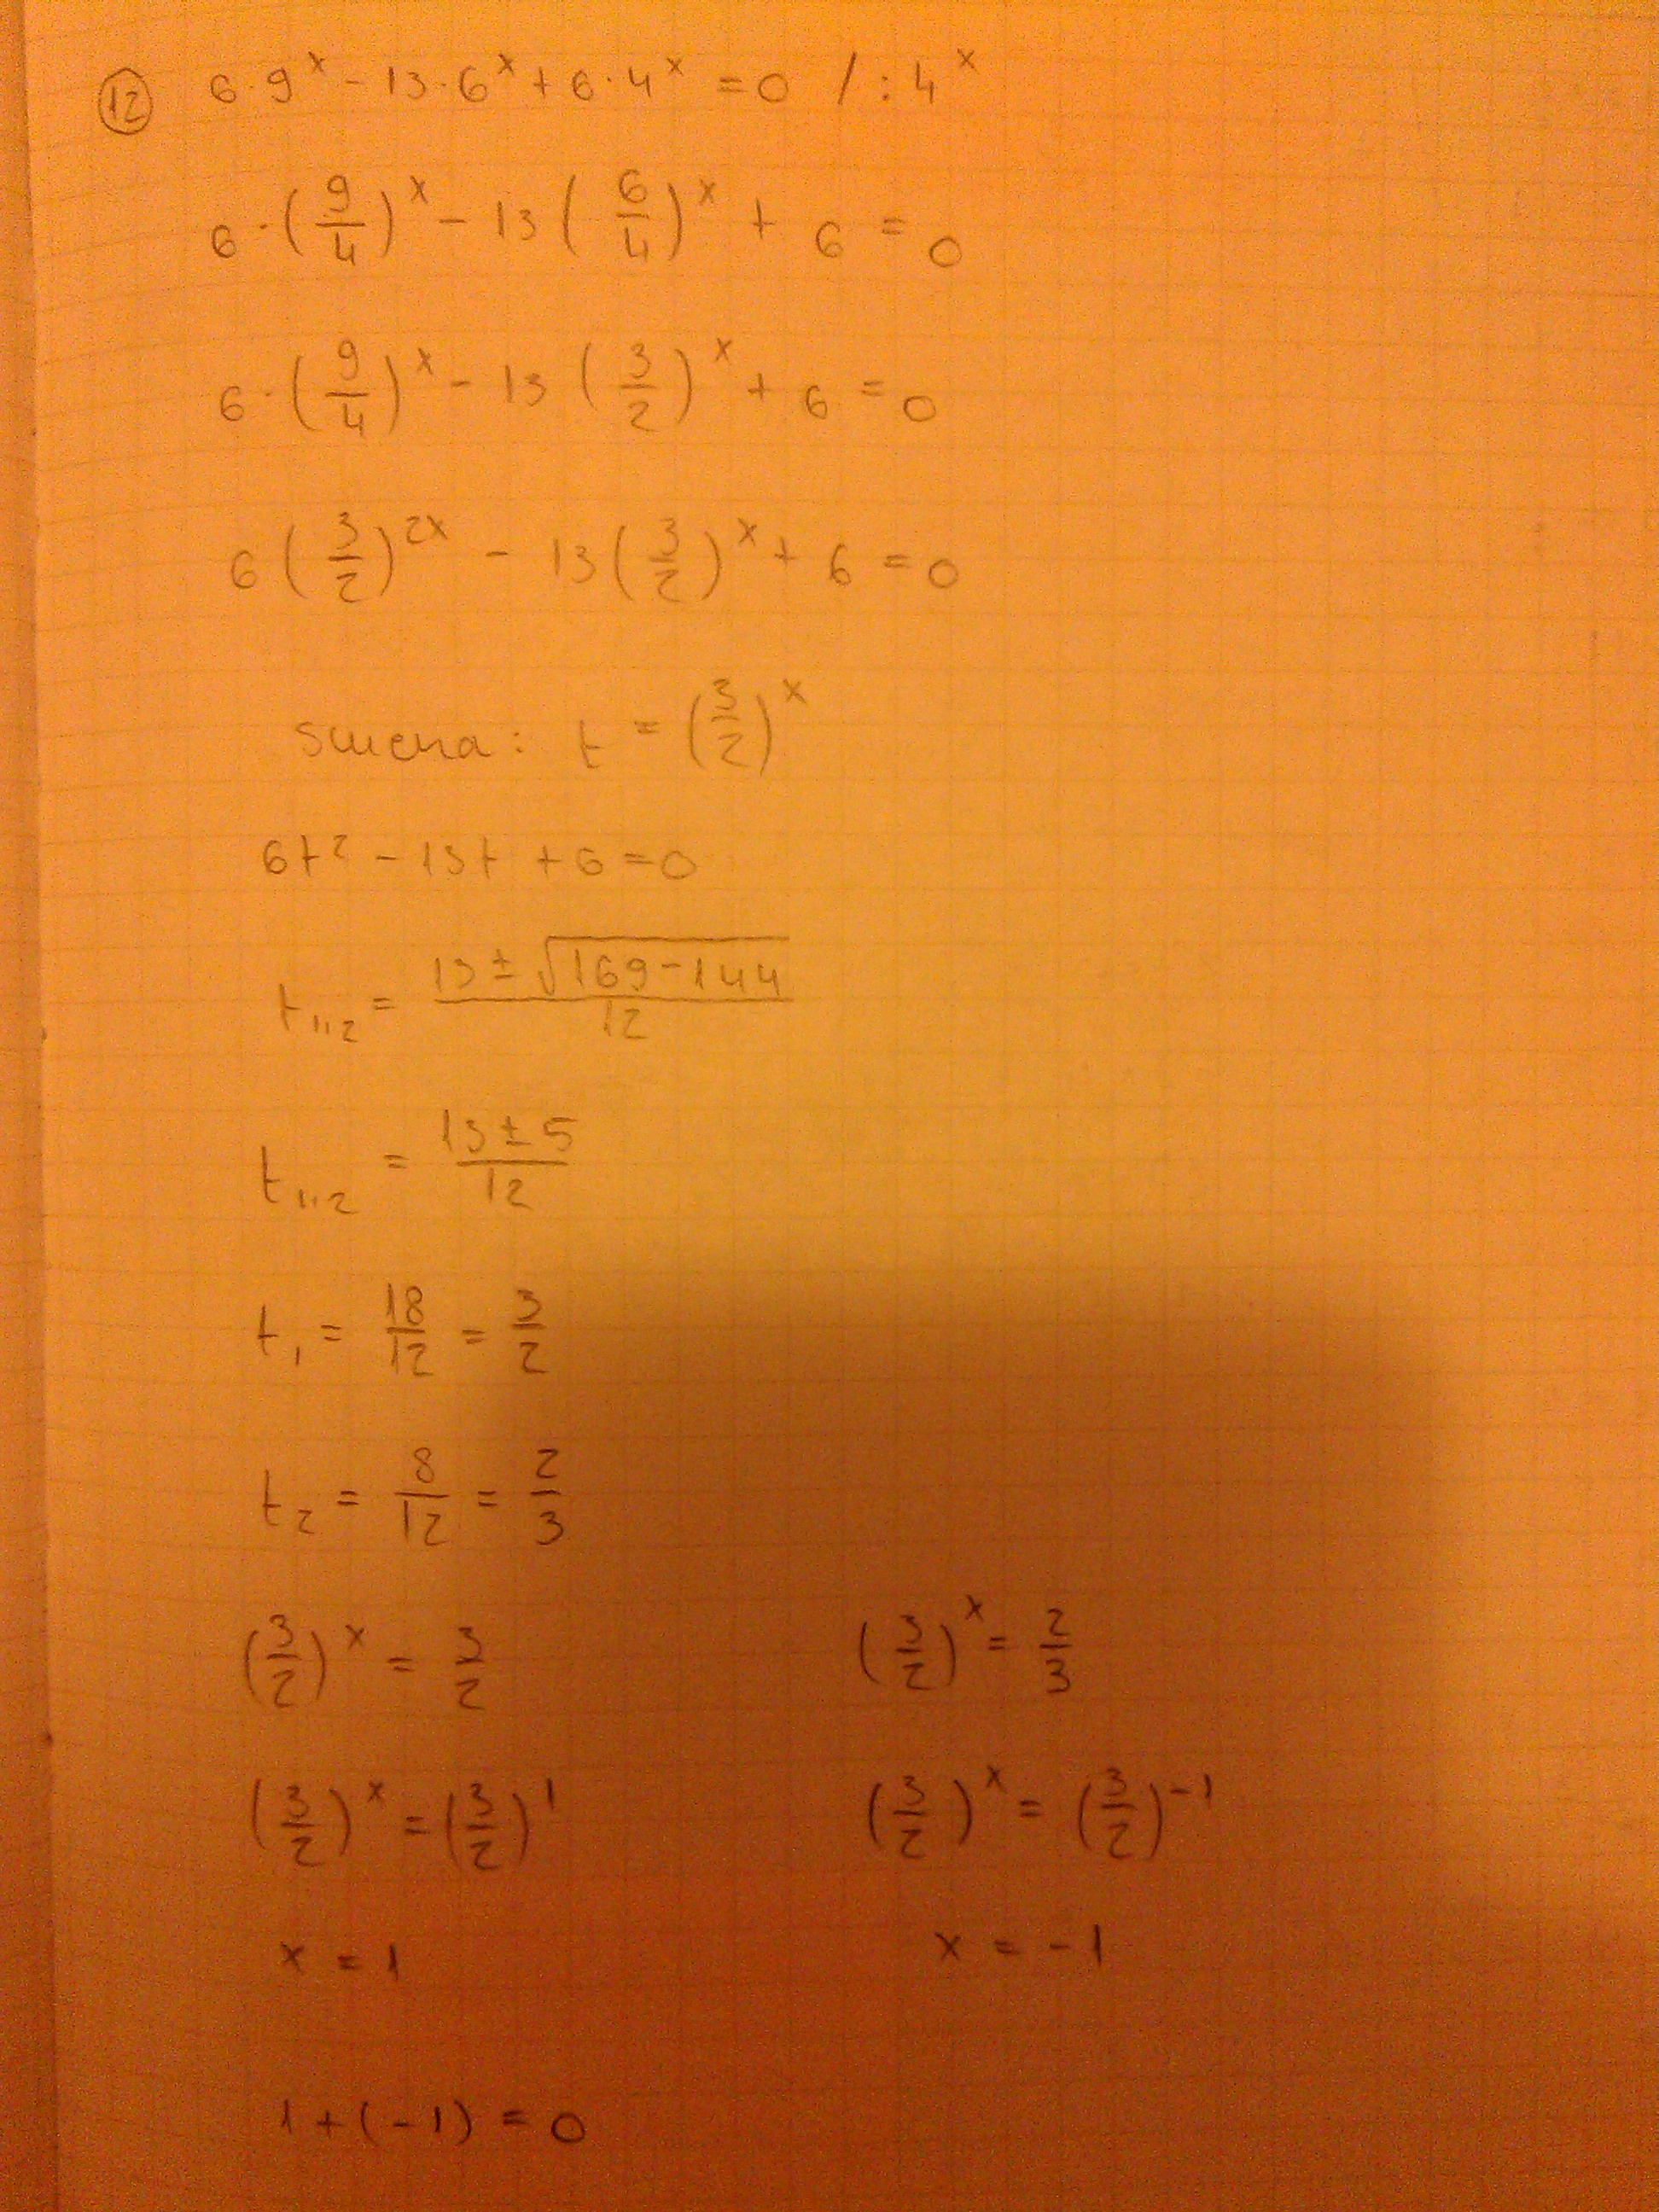 12 6·9^x - 13·6^x + 6·4^x = 0 / : 4^x
6·(9/4)^x - 13(6/4)^x + 6 = 0
6·(9/4)^x - 13(3/2)^x + 6 = 0
6(3/2)^2x - 13(3/2)^x + 6 = 0
smena: t = (3/2)^x
6t² - 13t + 6 = 0
t₁,₂ = (13 ± √(169-144))/12
t₁,₂ = (13 ± 5)/12
t₁ = 18/12 = 3/2
t₂ = 8/12 = 2/3
(3/2)^x = 3/2 (3/2)^x = 2/3
(3/2)^x = (3/2)^1 (3/2)^x = (3/2)^-1
x = 1 x = -1
1 + (-1) = 0